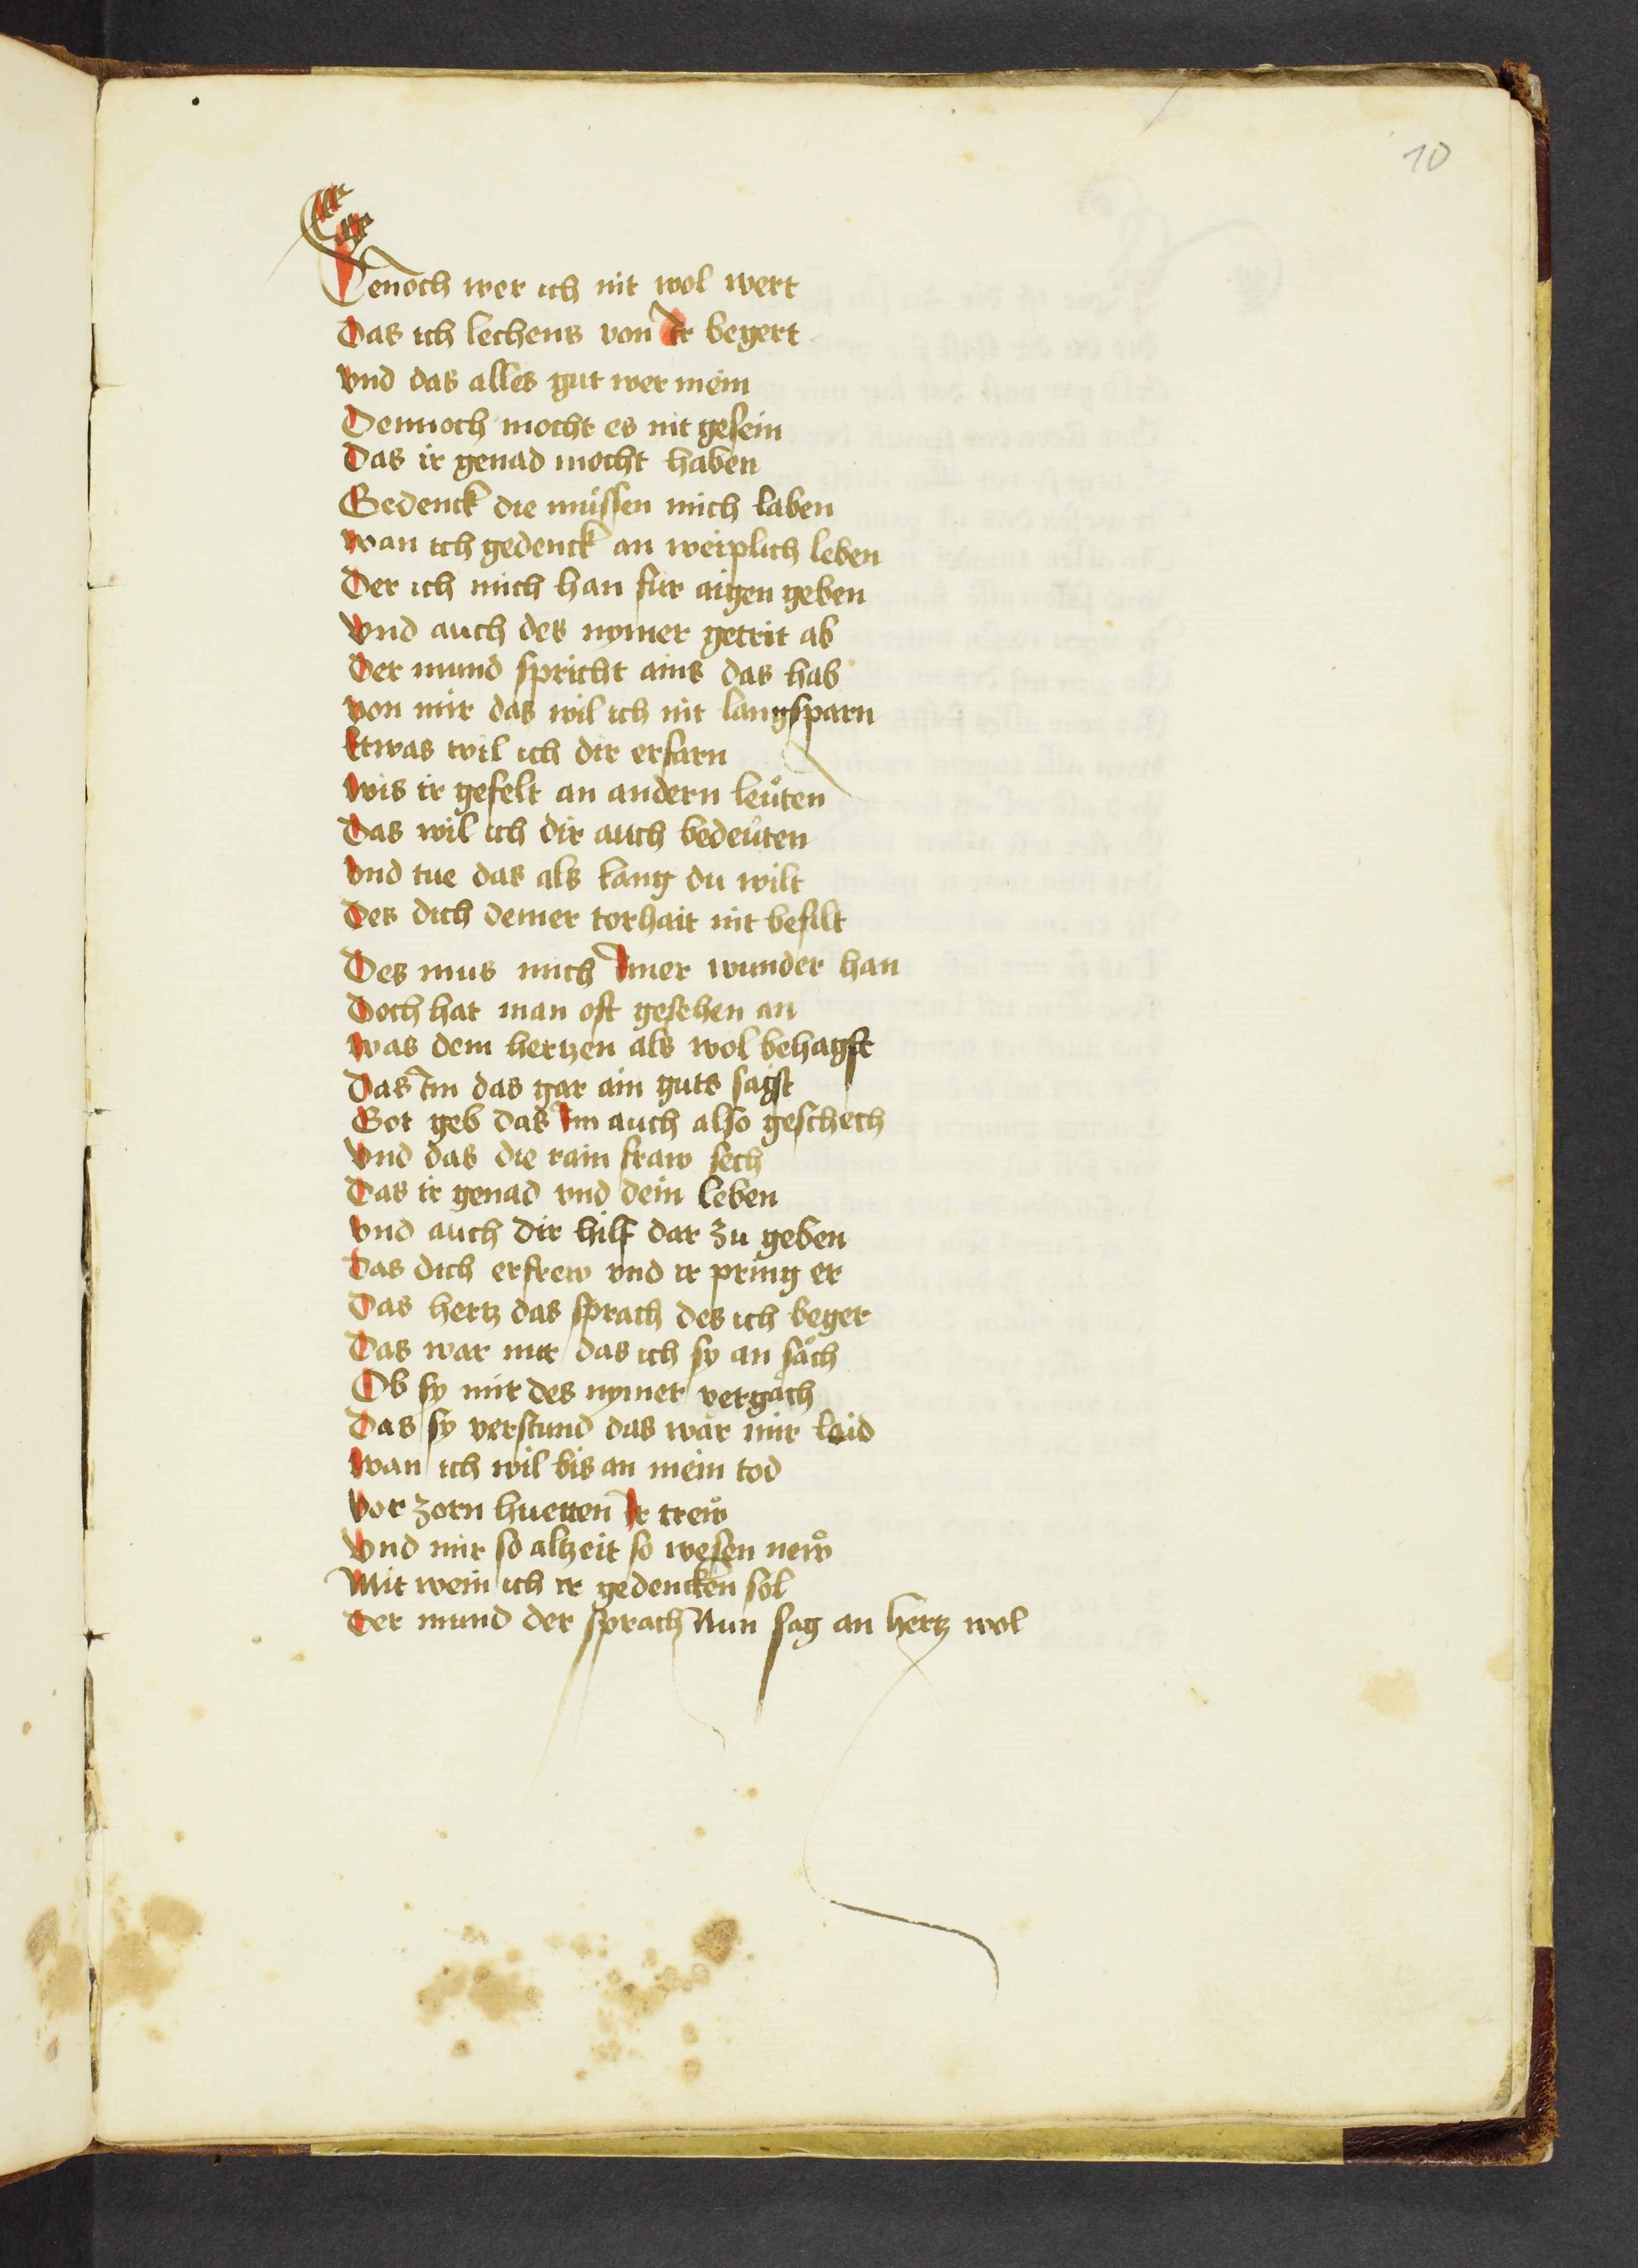 10
Denoch wer ich nit wol wert
Das ich lechens von Ir begert
Vnd das alles gut wer mein
Dennoch mocht es nit gesein
Das ir genad mocht haben
Gedenck die müssen mich laben
Wan ich gedenck an weiplich leben
Der ich mich han für aigen geben
Vnd auch des nymer getrit ab
Der mund spricht ains das hab
Von mir das wil ich nit lang sparn
Etwas wil ich dir erfarn
Wis ir gefelt an andern leůten
Das wil ich dir auch bedeůten
Vnd tue das als lang du wilt
Des dich deiner torhait nit befilt
Des mus mich Imer wunder han
Doch hat man oft gesehen an
Was dem hertzen als wol behagst
Das Im das gar ain guts sagst
Got geb das Im auch also geschech
Vnd das die rain fraw sech
Das ir genad vnd dein leben
Vnd auch dir hilf dar zu geben
Das dich erfrew vnd ir pring er
Das hertz das sprach des ich beger
Das war mir das ich sy an såch
Ob sy mir des nymer vergåch
Das sy verstund das wår mir laid
Wan ich wil bis an mein tod
Vor zorn huetten Ir treẘ
Vnd mir so altzeit so wesen neẘ
Mit wem ich ir gedencken sol
Der mund der sprach Nun sag an hertz wol